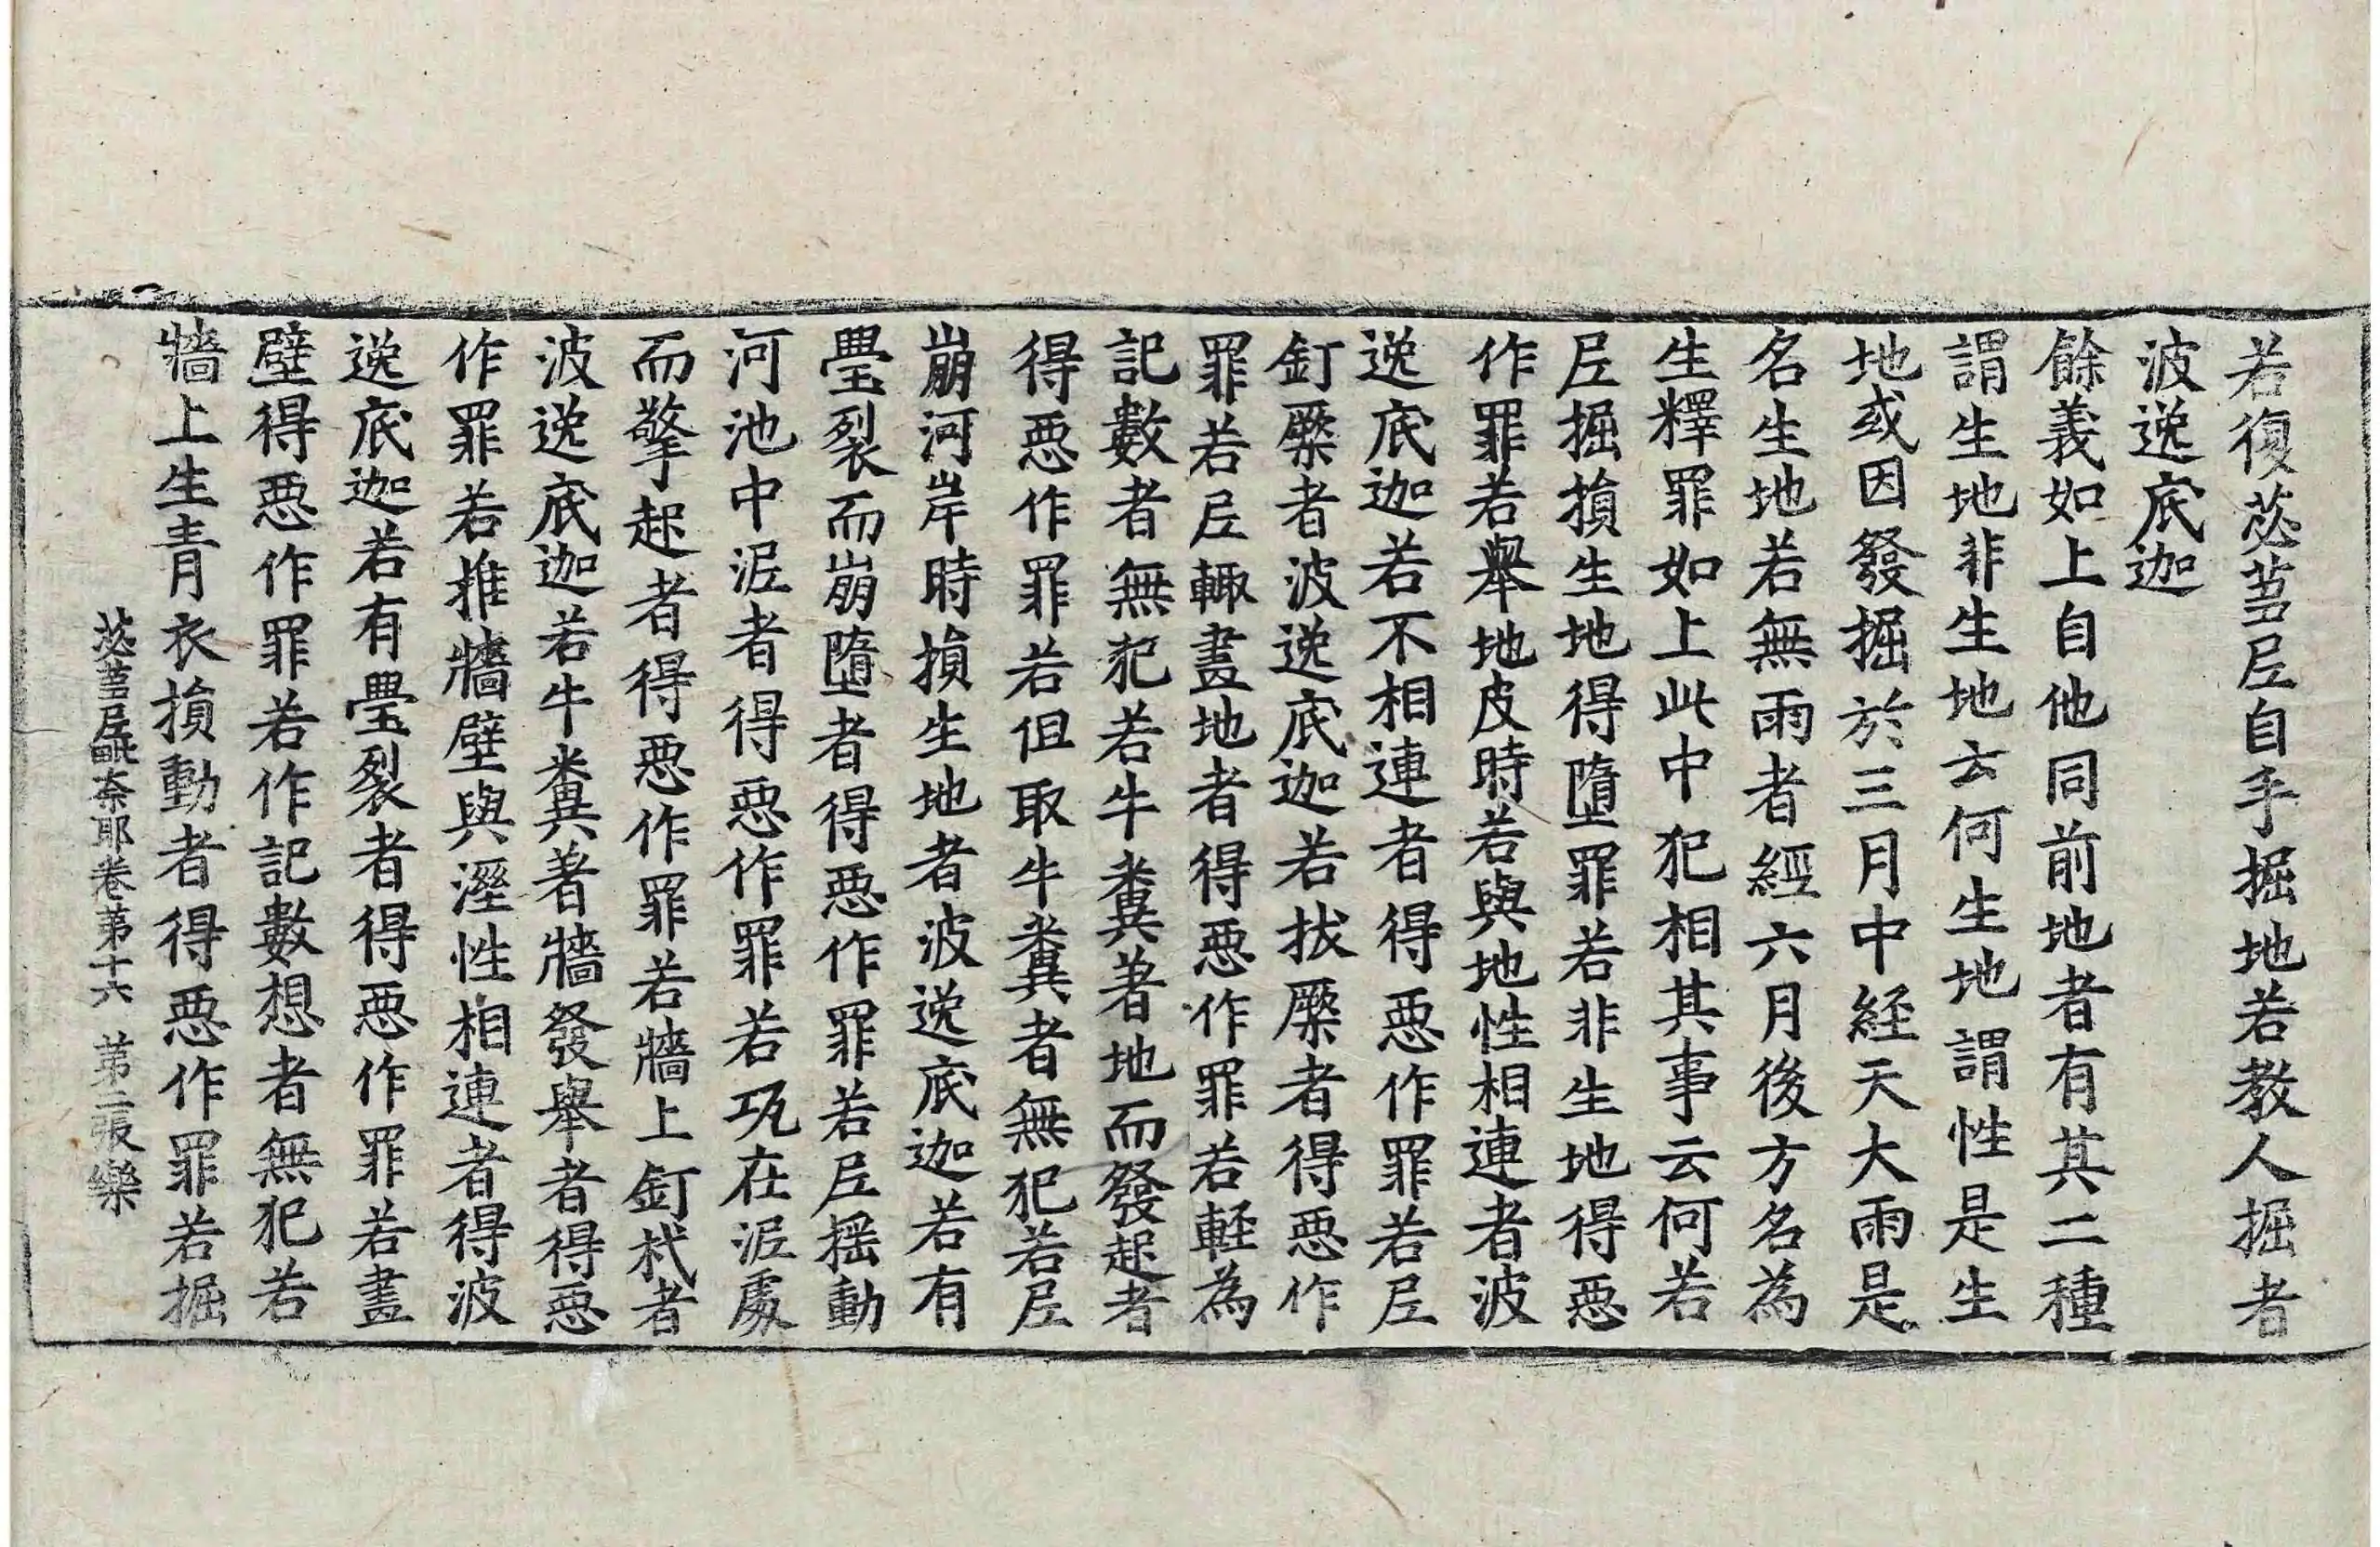 若復苾芻尼自手掘地若教人掘者
波逸底迦
餘義如上自他同前地者有其二種
謂生地非生地云何生地謂性是生
地或因發掘於三月中経天大雨是
名生地若無雨者經六月後方名為
生釋罪如上此中犯相其事云何若
尼掘損生地得墮罪若非生地得惡
作罪若舉地皮時若與地性相連者波
逸底迦若不相連者得惡作罪若尼
釘橛者波逸底迦若拔橛者得惡作
罪若尼輙畫地者得惡作罪若輕為
記數者無犯若牛糞著地而發起者
得惡作罪若但取牛糞者無犯若尼
崩河岸時損生地者波逸底迦若有
璺裂而崩墮者得惡作罪若尼搖動
河池中泥者得惡作罪若瓨在泥處
而擎起者得惡作罪若牆上釘杙者
波逸底迦若牛糞著牆發舉者得惡
作罪若推牆壁與溼性相連者得波
逸底迦若有璺裂者得惡作罪若畫
壁得惡作罪若作記數想者無犯若
牆上生青衣損動者得惡作罪若掘
苾芻尼毗奈耶卷第十六 第二張 樂